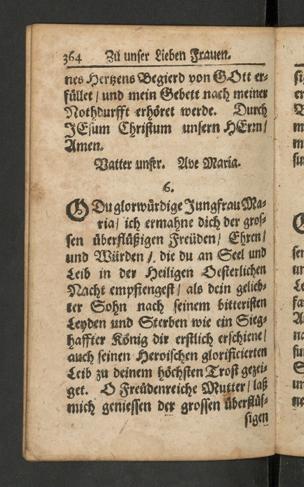 364 Zu unser Lieben Frauen.
nes Hertzens Begierd von GOtt er-
füllet / und mein Gebett nach meiner
Nothdurfft erhöret werde. Durch
JEsum Christum unsern HErrn /
Amen.
Vatter unser. Ave Maria.
6.
O Du glorwürdige Jungfrau Ma-
ria / ich ermahne dich der gros-
sen überflüßigen Freüden / Ehren /
und Würden / die du an Seel und
Leib in der Heiligen Oesterlichen
Nacht empfiengest / als dein gelieb-
ter Sohn nach seinem bitteristen
Leyden und Sterben wie ein Sieg-
haffter König dir erstlich erschiene /
auch seinen Heroischen glorificierten
Leib zu deinem höchsten Trost gezei-
get. O Freüdenreiche Mutter / laß
mich geniessen der grossen überflüs-
sigen